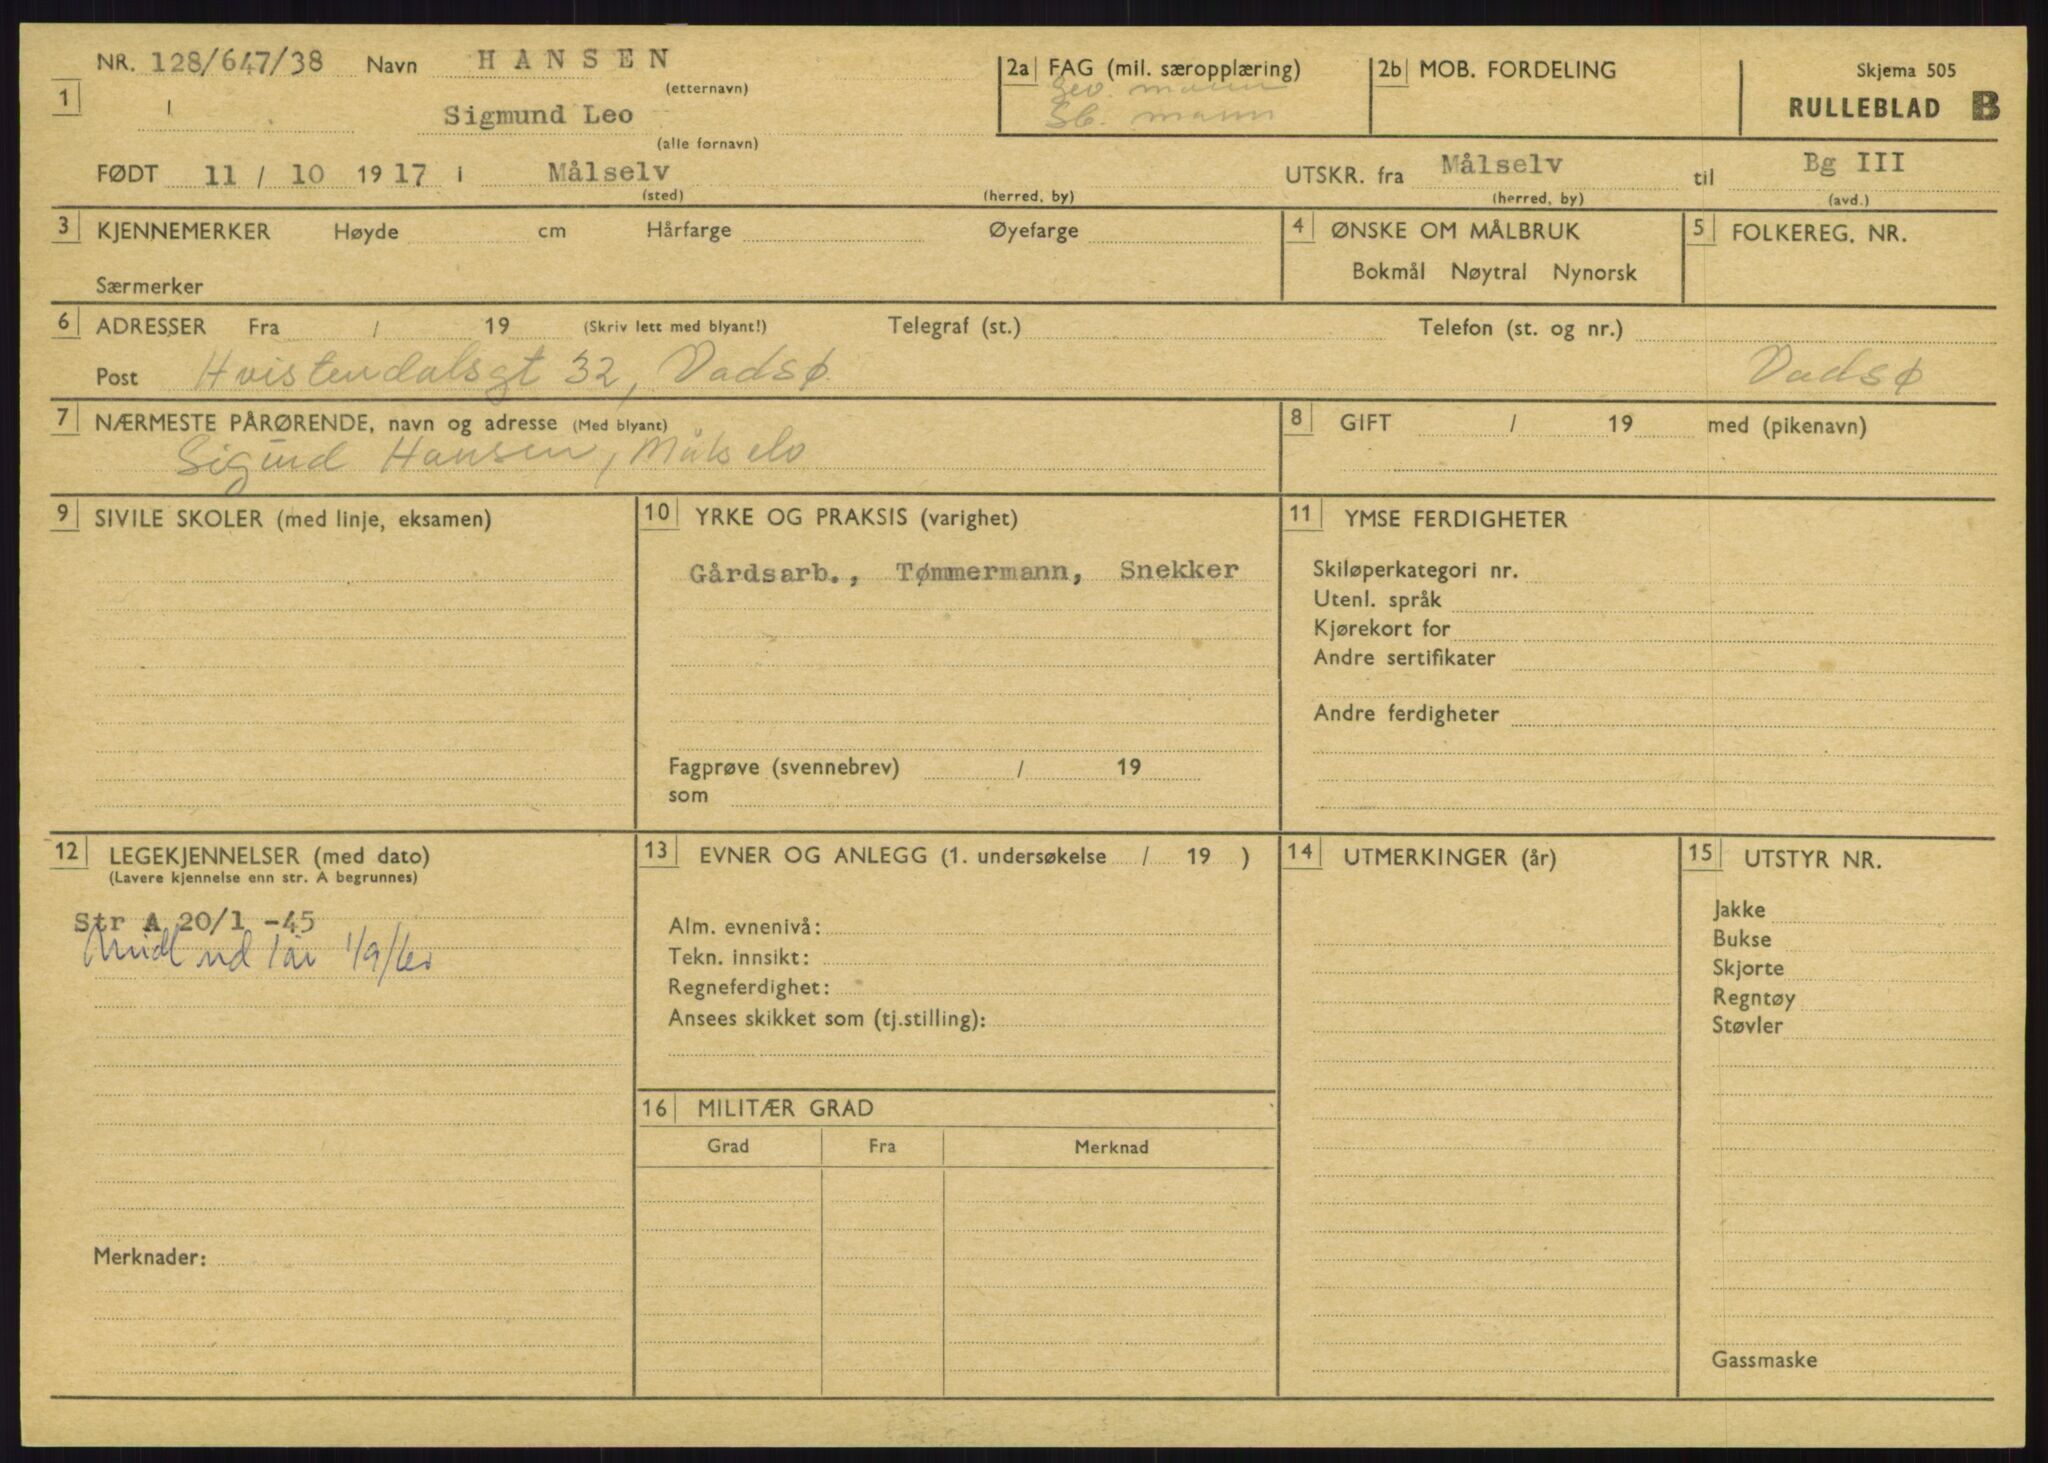 NR. 128/647/38 Navn HANSEN 2a FAG (mil. særopplæring) 2b MOB. FORDELING Skjema 505
(etternavn) Gev. mann
1 Sigmund Leo Sb. mann RULLEBLAD B
(alle fornavn)
FØDT 11 / 10 1917 i Målselv UTSKR. fra Målselv til Bg III
(sted) (herred, by) (herred, by) (avd.)
3 KJENNEMERKER Høyde cm Hårfarge Øyefarge 4 ØNSKE OM MÅLBRUK 5 FOLKEREG. NR.
Bokmål Nøytral Nynorsk
Særmerker
6 ADRESSER Fra / 19 (Skriv lett med blyant!) Telegraf (st.) Telefon (st. og nr.)
Post Hvistendalsgt 32, Vadsø Vadsø
7 NÆRMESTE PÅRØRENDE, navn og adresse (Med blyant) 8 GIFT / 19 med (pikenavn)
Sigurd Hansen, Målselv
9 SIVILE SKOLER (med linje, eksamen) 10 YRKE OG PRAKSIS (varighet) 11 YMSE FERDIGHETER
Gårdsarb., Tømmermann, Snekker Skiløperkategori nr.
Utenl. språk
Kjørekort for
Andre sertifikater
Andre ferdigheter
Fagprøve (svennebrev) / 19
som
12 LEGEKJENNELSER (med dato) 13 EVNER OG ANLEGG (1. undersøkelse / 19 ) 14 UTMERKINGER (år) 15 UTSTYR NR.
(Lavere kjennelse enn str. A begrunnes)
Str A 20/1 -45 Alm. evnenivå: Jakke
Bukse
Tekn. innsikt: Skjorte
Regneferdighet: Regntøy
Ansees skikket som (tj.stilling): Støvler
16 MILITÆR GRAD
Grad Fra Merknad
Merknader:
Gassmaske